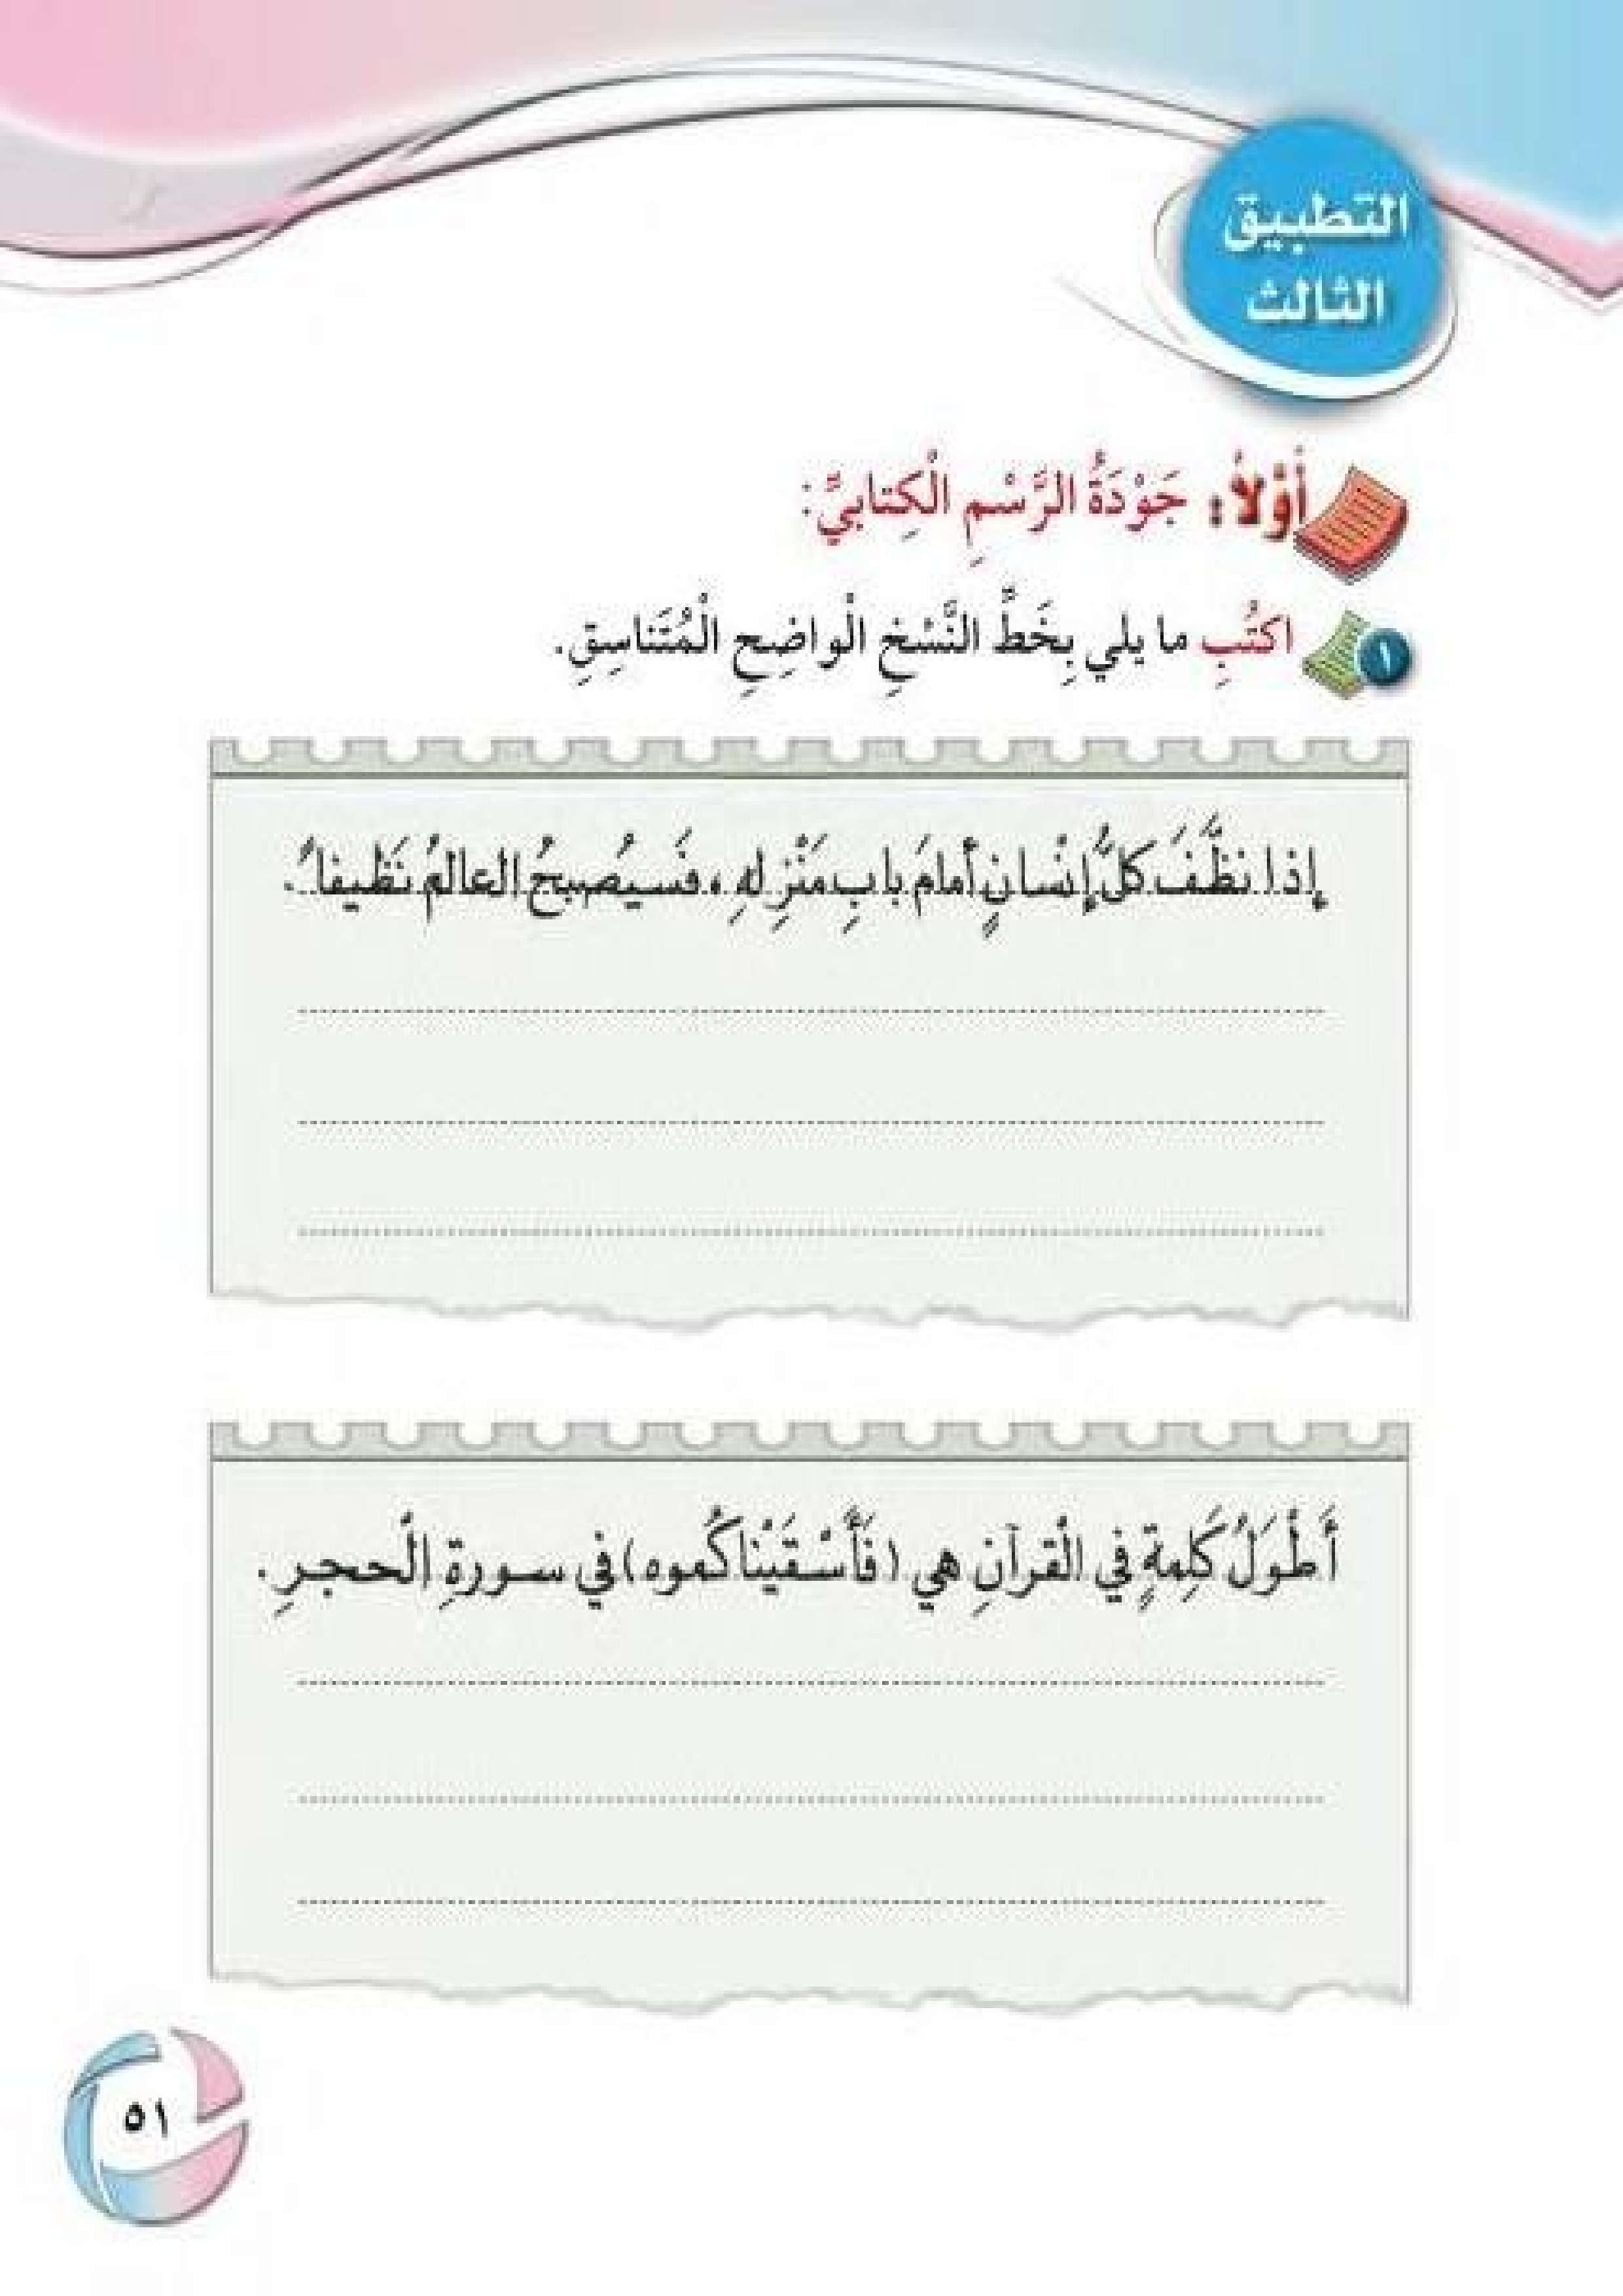 التطبيق
الثالث
أَوَّلاً: جَوْدَةُ الرَّسْمِ الْكِتابيِّ:
١ اكتُبِ ما يلي بِخَطِّ النَّسْخِ الْواضِحِ الْمُتَناسِقِ.
إذا نظَّفَ كلُّ إنْسانٍ أمامَ بابِ مَنْزِلهِ، فَسيُصبحُ العالمُ نَظيفاً.
أَطْوَلُ كَلِمةٍ في الْقرآنِ هي (فَأَسْقَيْناكُموه) في سورةِ الْحجرِ.
٥١